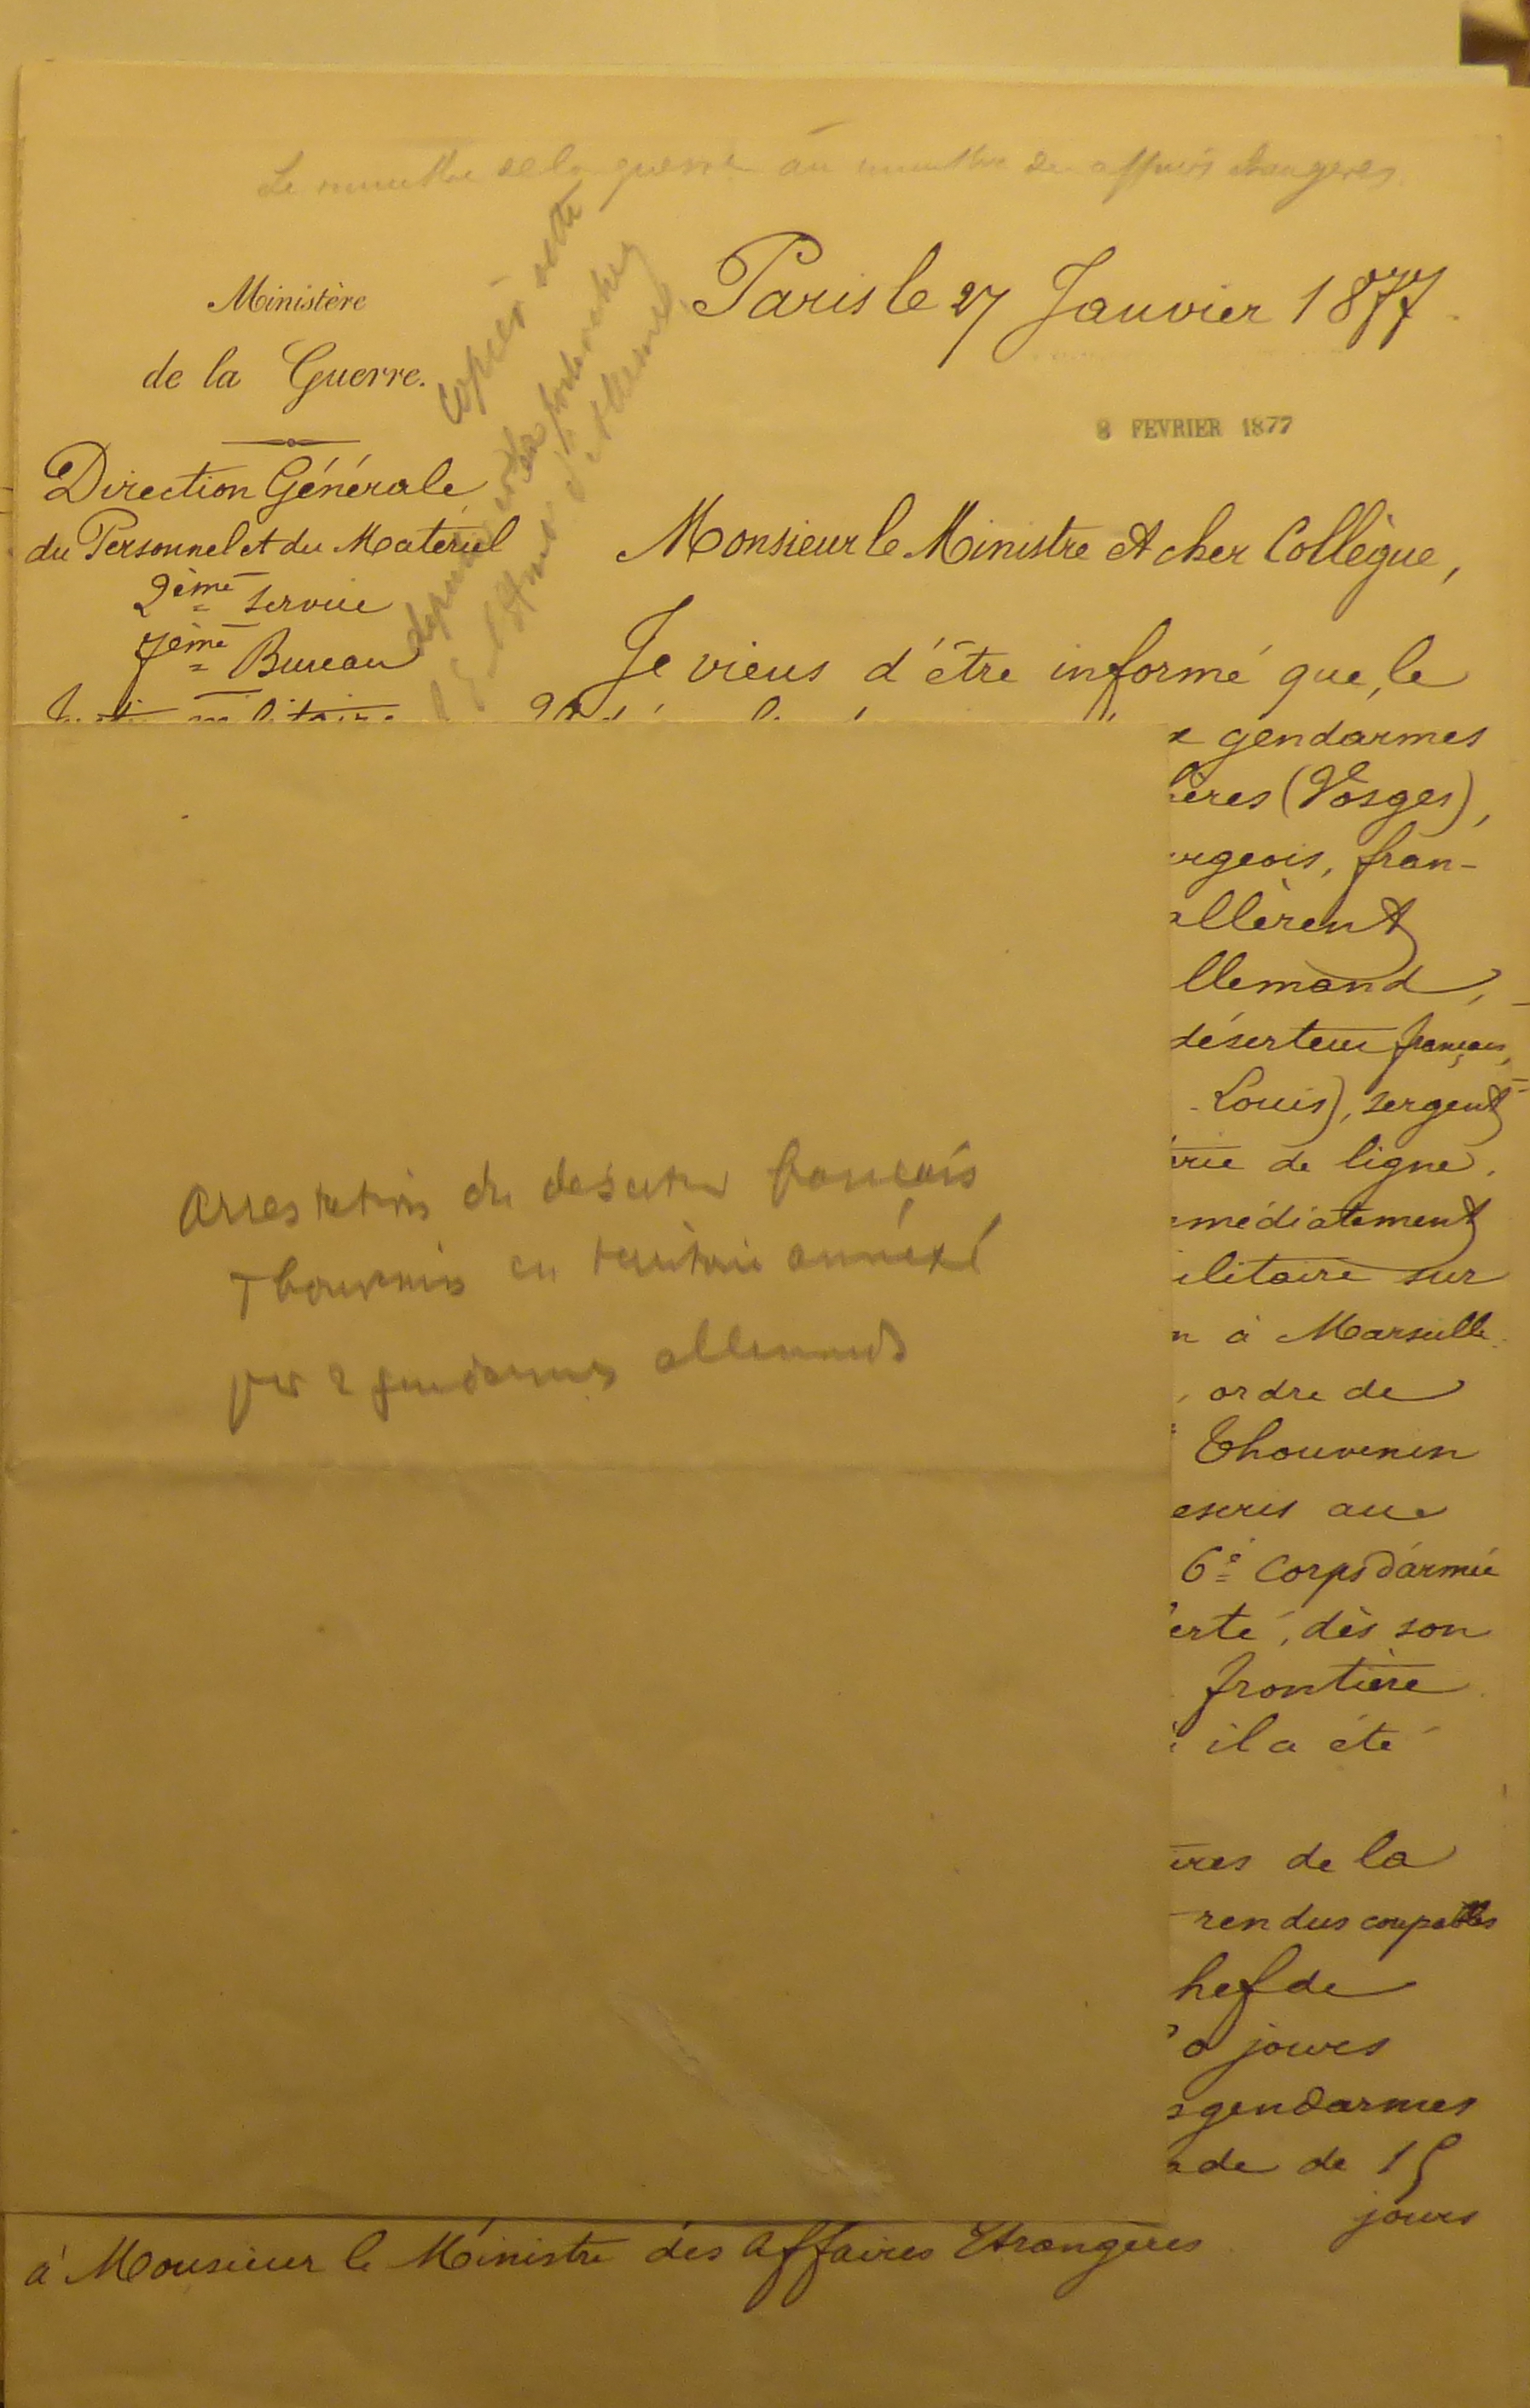 Le ministre de la guerre au ministre des affaires étrangères
Ministère
de la Guerre.
Direction Générale
du Personnel et du Matériel
2ème service
7ème Bureau
copier cette
Paris le 27 Janvier 1877
8 FEVRIER 1877
Monsieur le Ministre et cher Collègue,
Je viens d'être informé que, le
gendarmes
ières (Vosges),
urgeois, fran-
allèrent
llemand,
déserteur français,
Louis), sergent
rie de ligne.
médiatement
ilitaire sur
n à Marseille.
ordre de
Thouvenin
escris au
6e Corps d'armée
erté, dès son
frontière
il a été
ires de la
rendus coupables
hef de
0 jours
gendarmes
ade de 15
jours
Arrestation du déserteur français
Thouvenin en territoire annexé
par 2 gendarmes allemands
à Monsieur le Ministre des Affaires Etrangères